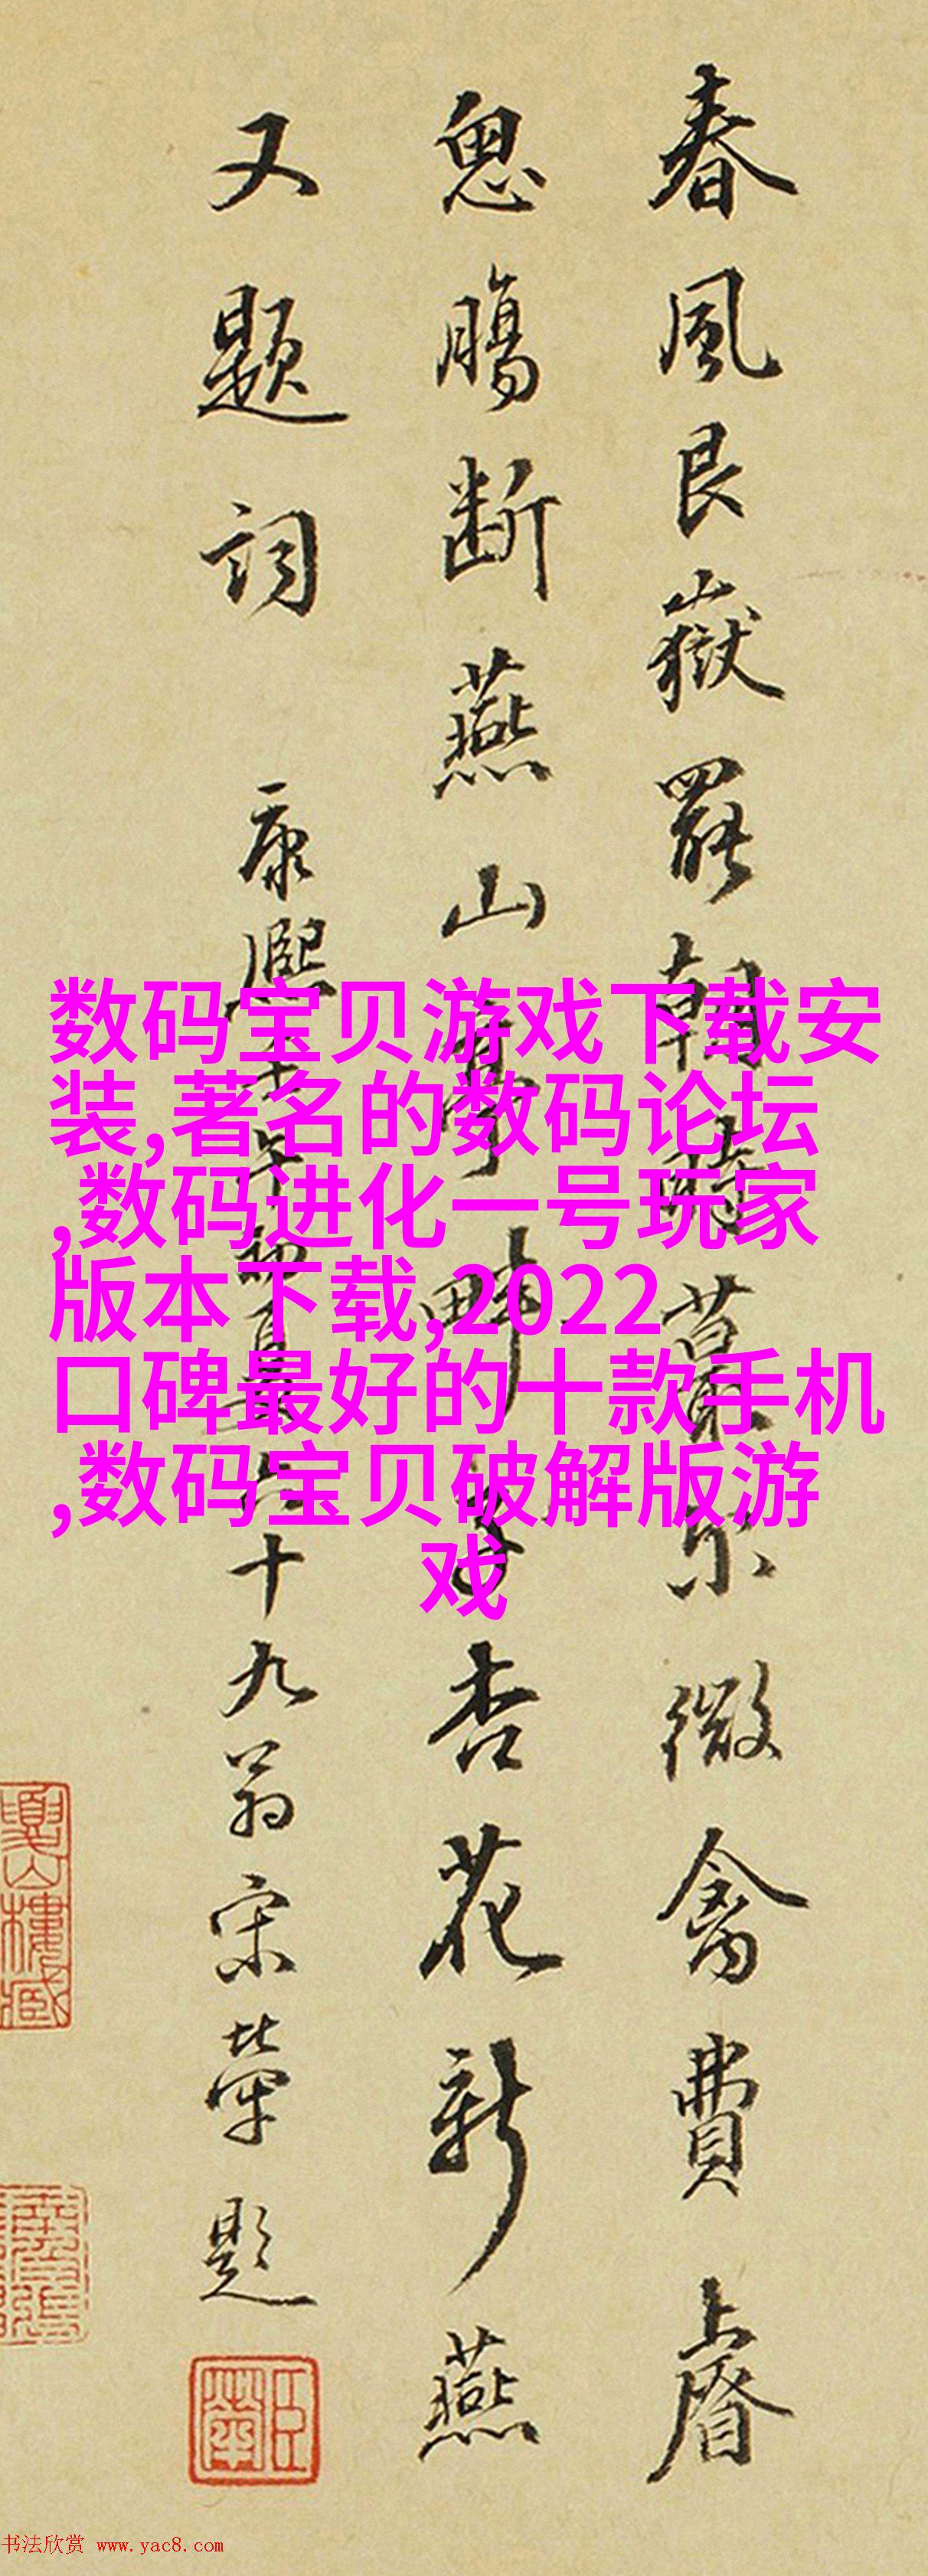 春風艮嶽罷朝時蕞尔微禽費上
腸断燕山亭畔杏花新燕
又題詞 康熙壬午初夏六十九翁宋犖題
臣犖
数码宝贝游戏下载安
装,著名的数码论坛
,数码进化一号玩家
版本下载,2022
口碑最好的十款手机
,数码宝贝破解版游
戏
书法欣赏 www.yac8.com